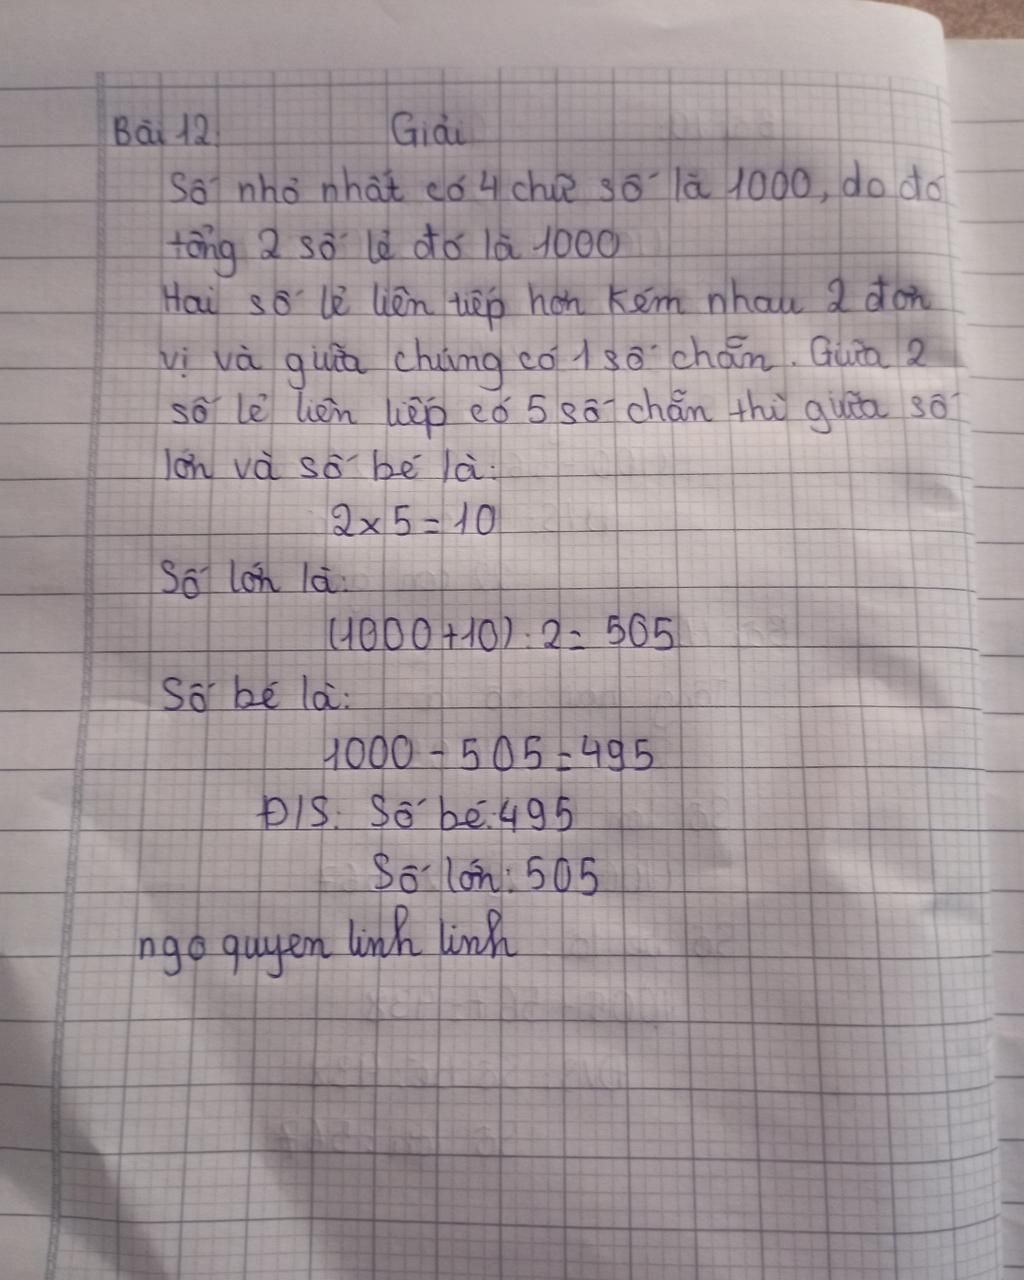 Bài 12 Giải
Số nhỏ nhất có 4 chữ số là 1000, do đó
tổng 2 số lẻ đó là 1000
Hai số lẻ liên tiếp hơn kém nhau 2 đơn
vị và giữa chúng có 1 số chẵn. Giữa 2
số lẻ liên tiếp có 5 số chẵn thì giữa số
lớn và số bé là:
2 x 5 = 10
Số lớn là:
(1000 + 10) : 2 = 505
Số bé là:
1000 - 505 = 495
Đ/S: Số bé: 495
Số lớn: 505
ngo quyen linh linh